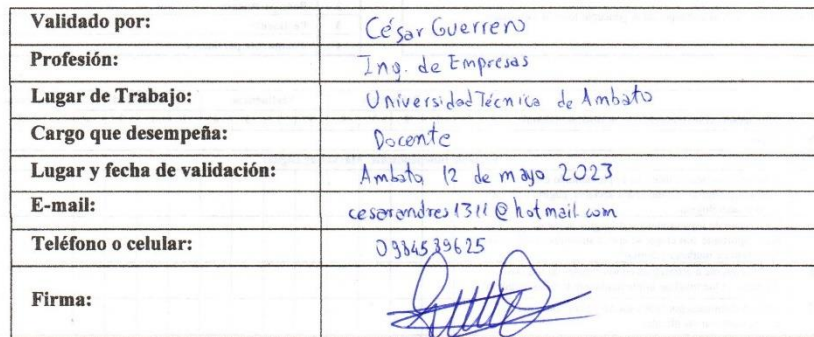 Validado por: César Guerrero
Profesión: Ing. de Empresas
Lugar de Trabajo: Universidad Técnica de Ambato
Cargo que desempeña: Docente
Lugar y fecha de validación: Ambato 12 de mayo 2023
E-mail: cesarandres1311@hotmail.com
Teléfono o celular:
Firma: